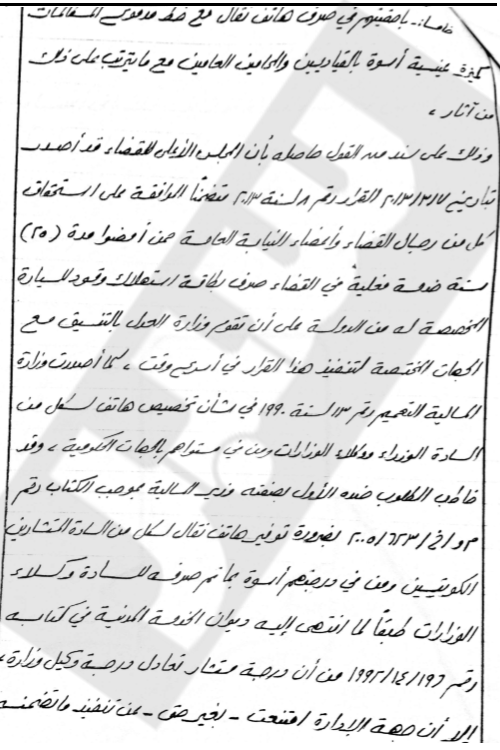 خامساً:- بأحقيتهم في صرف هاتف نقال مع خط مدفوع المكالمات
كميزة عينية أسوة بالقياديين والمحامين العامين مع ما يترتب على ذلك
من آثار ،
وذلك على سند من القول حاصله بأن المجلس الأعلى للقضاء قد أصدر
بتاريخ ٢٠١٣/٣/٧ القرار رقم ٨ لسنة ٢٠١٣ متضمناً الموافقة على استحقاق
كل من رجال القضاء وأعضاء النيابة العامة ممن أمضوا مدة (٢٥)
سنة خدمة فعلية في القضاء صرف بطاقة استهلاك وقود للسيارة
المخصصة له من الدولة على أن تقوم وزارة العدل بالتنسيق مع
الجهات المختصة لتنفيذ هذا القرار في أسرع وقت ، كما أصدرت وزارة
المالية التعميم رقم ١٣ لسنة ١٩٩٠ في شأن تخصيص هاتف لكل من
السادة الوزراء ووكلاء الوزارات ومن في مستواهم بالجهات الحكومية ، وقد
خاطب المطعون ضده الأول بصفته وزير المالية بموجب الكتاب رقم
٢٠٠٥/٦٢٣ لضرورة توفير هاتف نقال لكل من السادة المستشارين
الكويتيين ومن في درجتهم أسوة بما تم صرفه للسادة وكلاء
الوزارات طبقاً لما انتهى إليه ديوان الخدمة المدنية في كتابه
رقم ١٩٩٢/١٤/١٩٦ من أن درجة مستشار تعادل درجة وكيل وزارة ،
إلا أن جهة الإدارة امتنعت - بغير حق - عن تنفيذ ما تضمنه